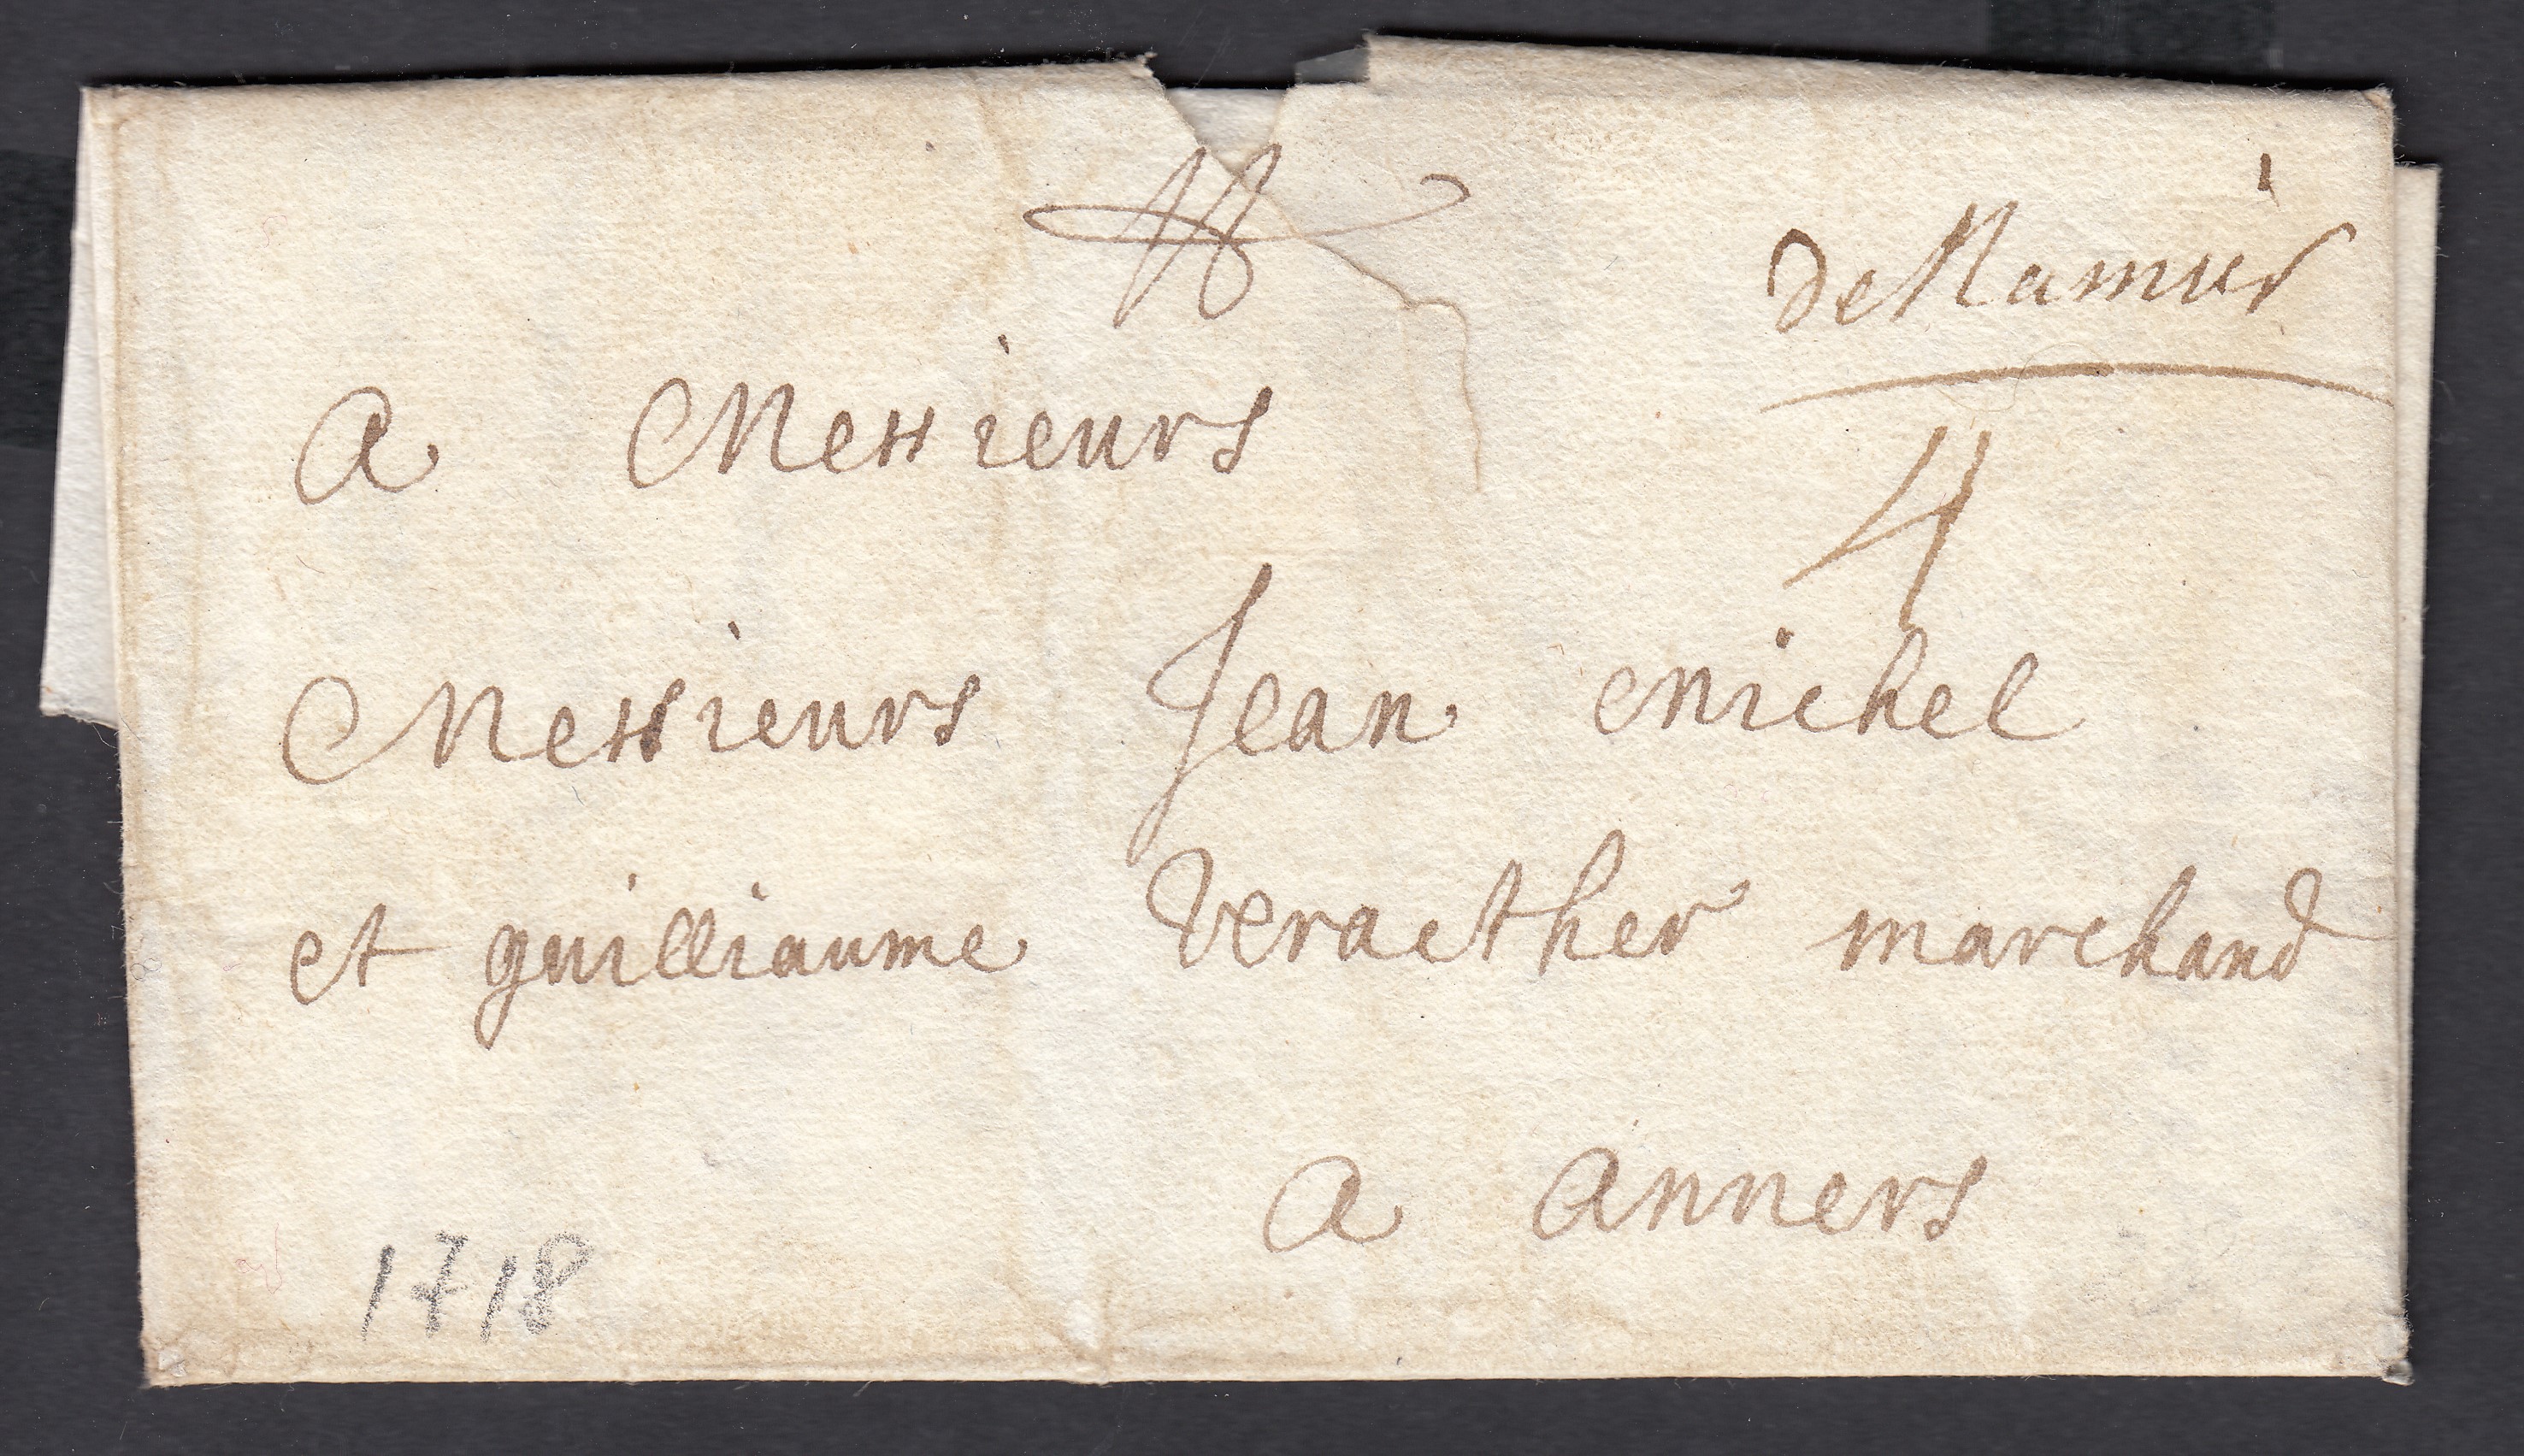 de Namur
4
A Messieurs
Messieurs Jean Michel
et guilliaume Veracther marchand
a anvers
1718